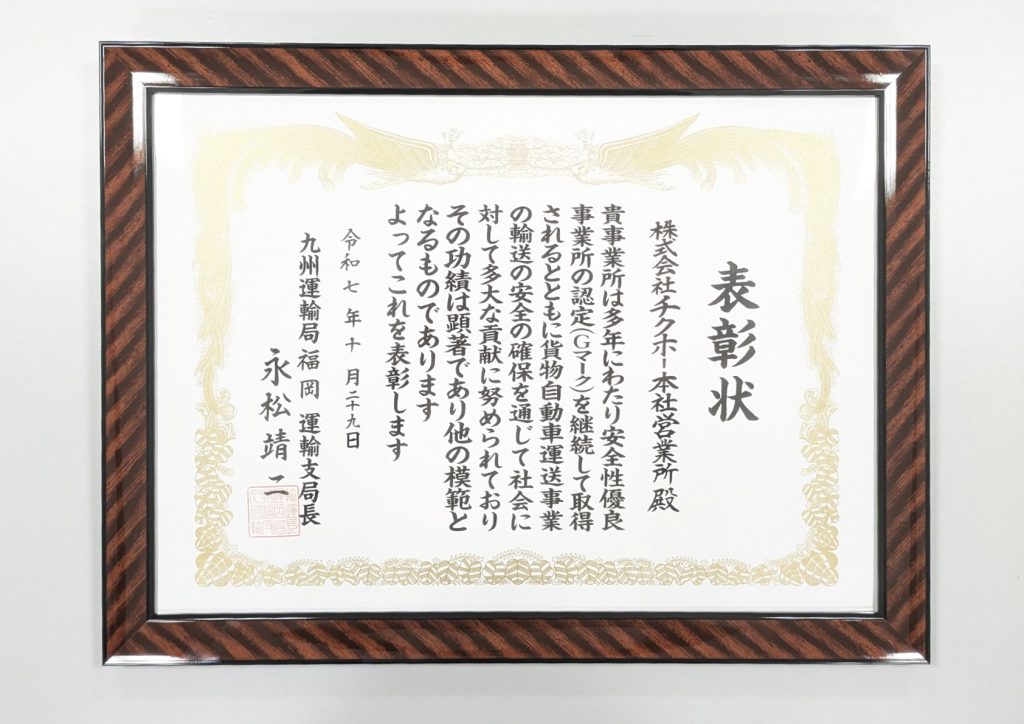 表彰状
株式会社チクホー本社営業所殿
貴事業所は多年にわたり安全性優良
事業所の認定(Gマーク)を継続して取得
されるとともに貨物自動車運送事業
の輸送の安全の確保を通じて社会に
対して多大な貢献に努められており
その功績は顕著であり他の模範と
なるものであります
よってこれを表彰します
令和七年十月二十九日
九州運輸局福岡運輸支局長
永松靖二